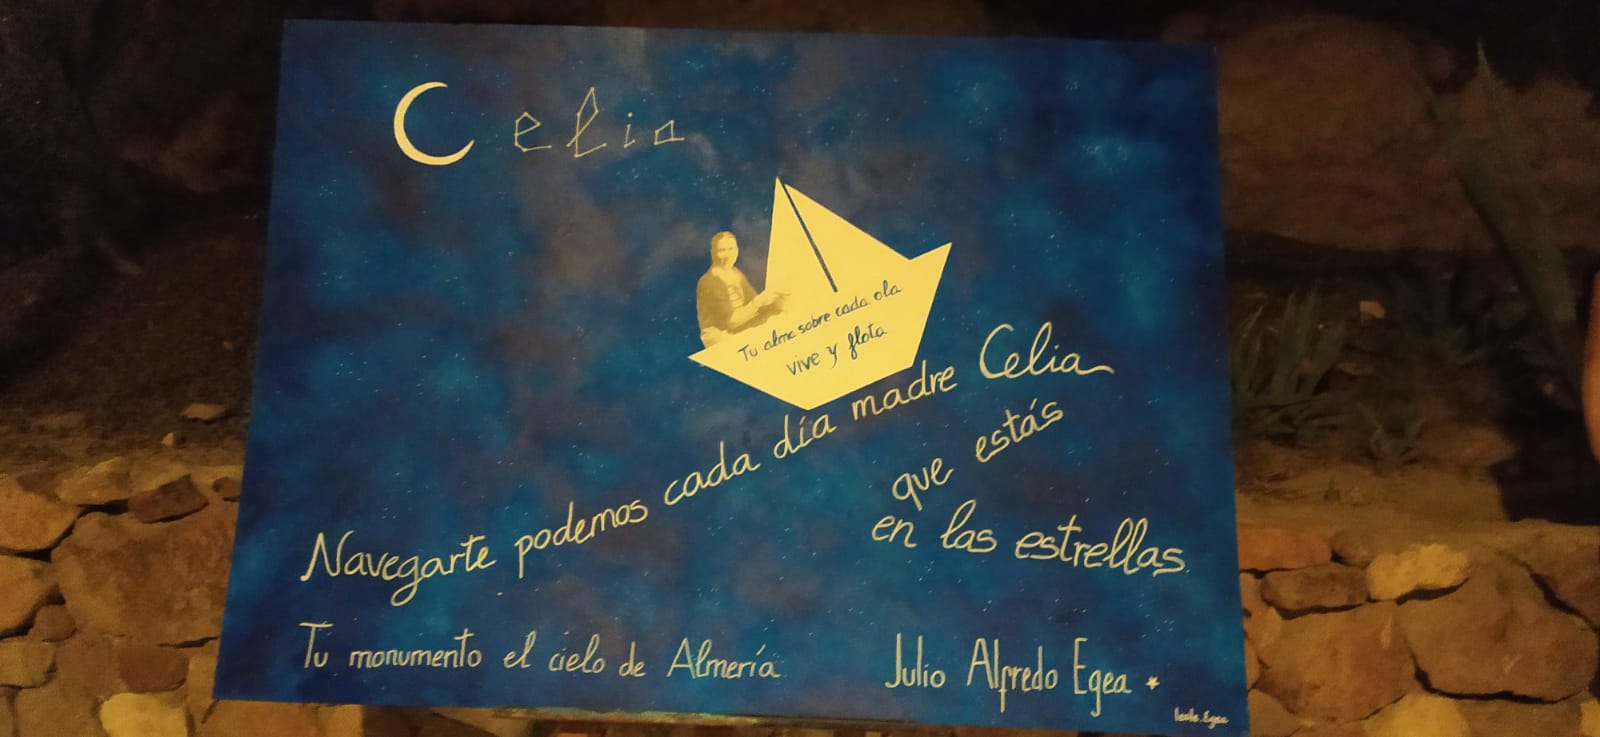 Celia
Tu alma sobre cada ola
vive y flota
Navegarte podemos cada día madre Celia
que estás
en las estrellas.
Tu monumento el cielo de Almería
Julio Alfredo Egea
Egea